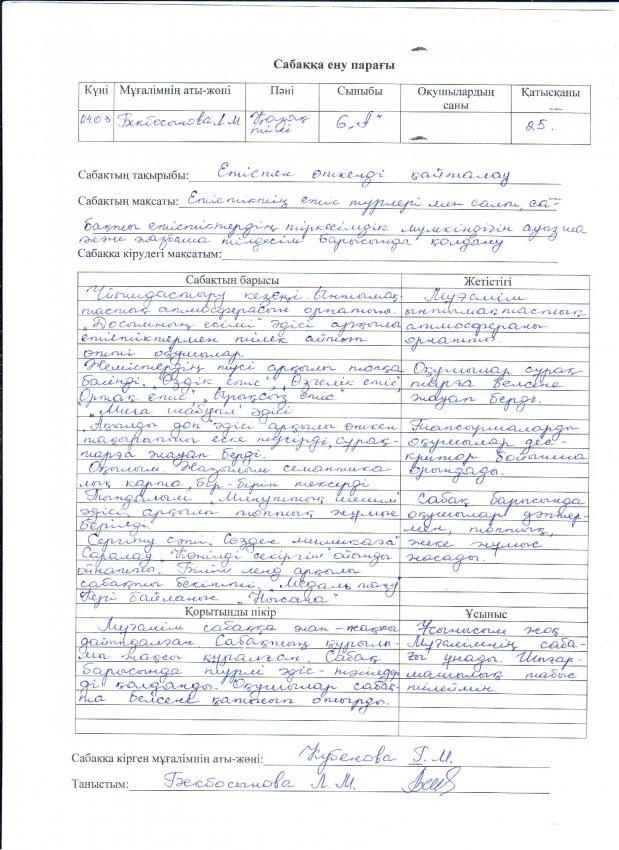 Сабаққа ену парағы
Күні Мұғалімнің аты-жөні Пәні Сыныбы Оқушылардың саны Қатысқаны
0403 Бекбосынова Л М Қазақ тілі 6 „А" 25.
Сабақтың тақырыбы: Етістен өткенді қайталау
Сабақтың мақсаты: Етістіктің етіс түрлері мен салт, са-
бақты етістіктердің тіркесімдік мүмкіндігін ауызша
және жазбаша тілдесім барысында қолдану
Сабаққа кірудегі мақсатым:
Сабақтың барысы
Ұйымдастыру кезеңі. Ынтымақ-
тастық атмосферасын орнатты.
„Досымның есімі" әдісі арқылы
етістіктермен тілек айтып
өтті оқушылар.
Жемістердің түсі арқылы топқа
бөлінді. „Өздік етіс", „Өзгелік етіс",
Ортақ етіс", „Ырықсыз етіс"
„Миға шабуыл" әдісі
„Ақылды доп" әдісі арқылы өткен
тақырыпты еске түсірді, сұрақ-
тарға жауап берді.
Оқылым. Жазылым семантика-
лық карта, бір-бірін тексерді
Тыңдалым „Минуттық шешім"
әдісі арқылы топтық жұмыс
берілді.
Сергіту сәті. Сөзден мимикаға
Саралау „Көңілді секіргіш" ойынды
ойнатты. Білім ленд арқылы
сабақты бекітті. „Медаль тағу"
Кері байланыс „Нысана"
Жетістігі
Мұғалім
ынтымақтастық
атмосфераны
орнатты.
Оқушылар сұрақ-
тарға белсене
жауап берді.
Тапсырмаларды
оқушылар дес-
криптор бойынша
орындады.
Сабақ барысында
оқушылар дәптер-
мен, топтық,
жеке жұмыс
жасады.
Қорытынды пікір
Мұғалім сабаққа жан-жақты
дайындалған. Сабақтың құрылы-
мы жақсы құралған. Сабақ
барысында түрлі әдіс-тәсілдер-
ді қолданды. Оқушылар сабақ-
та белсене қатысып отырды.
Ұсыныс
Ұсынысым жоқ.
Мұғалімнің саба-
ғы ұнады. Шығар-
машылық табыс
тілеймін.
Сабаққа кірген мұғалімнің аты-жөні: Кубенова Г. М.
Таныстым: Бекбосынова Л. М.